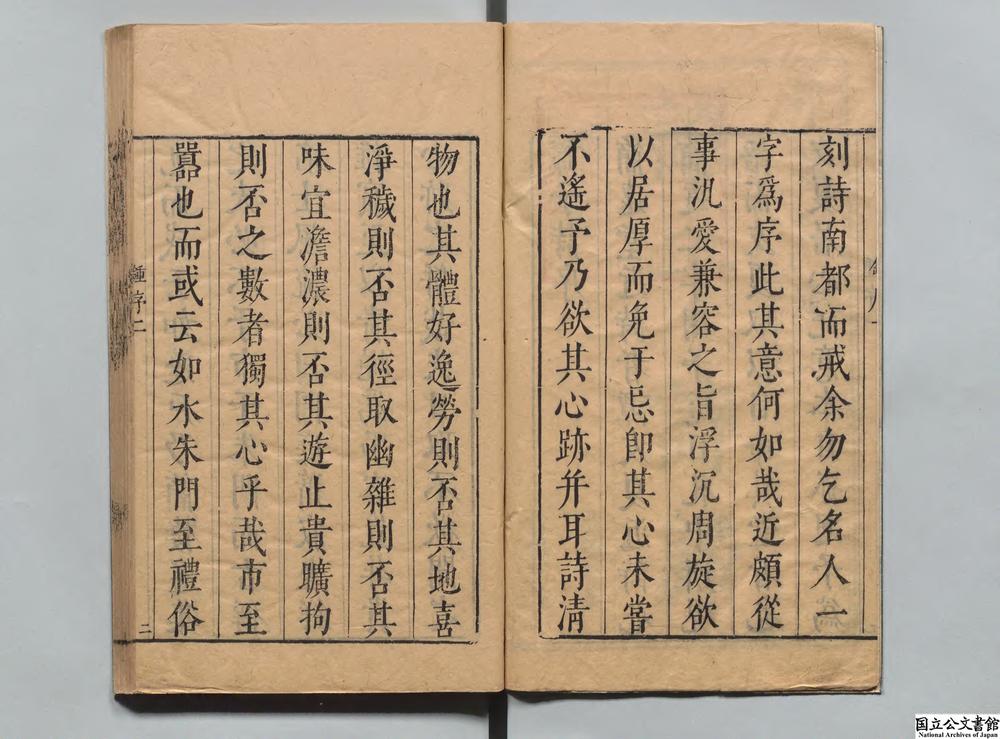 刻詩南都而戒余勿乞名人一
字爲序此其意何如哉近頗從
事汎愛兼容之旨浮沉周旋欲
以居厚而免于忌卽其心未嘗
不遙予乃欲其心跡并耳詩清
物也其體好逸勞則否其地喜
淨穢則否其徑取幽雜則否其
味宜澹濃則否其遊止貴曠拘
則否之數者獨其心乎哉市至
囂也而或云如水朱門至禮俗
鍾序二
二
国立公文書館
National Archives of Japan